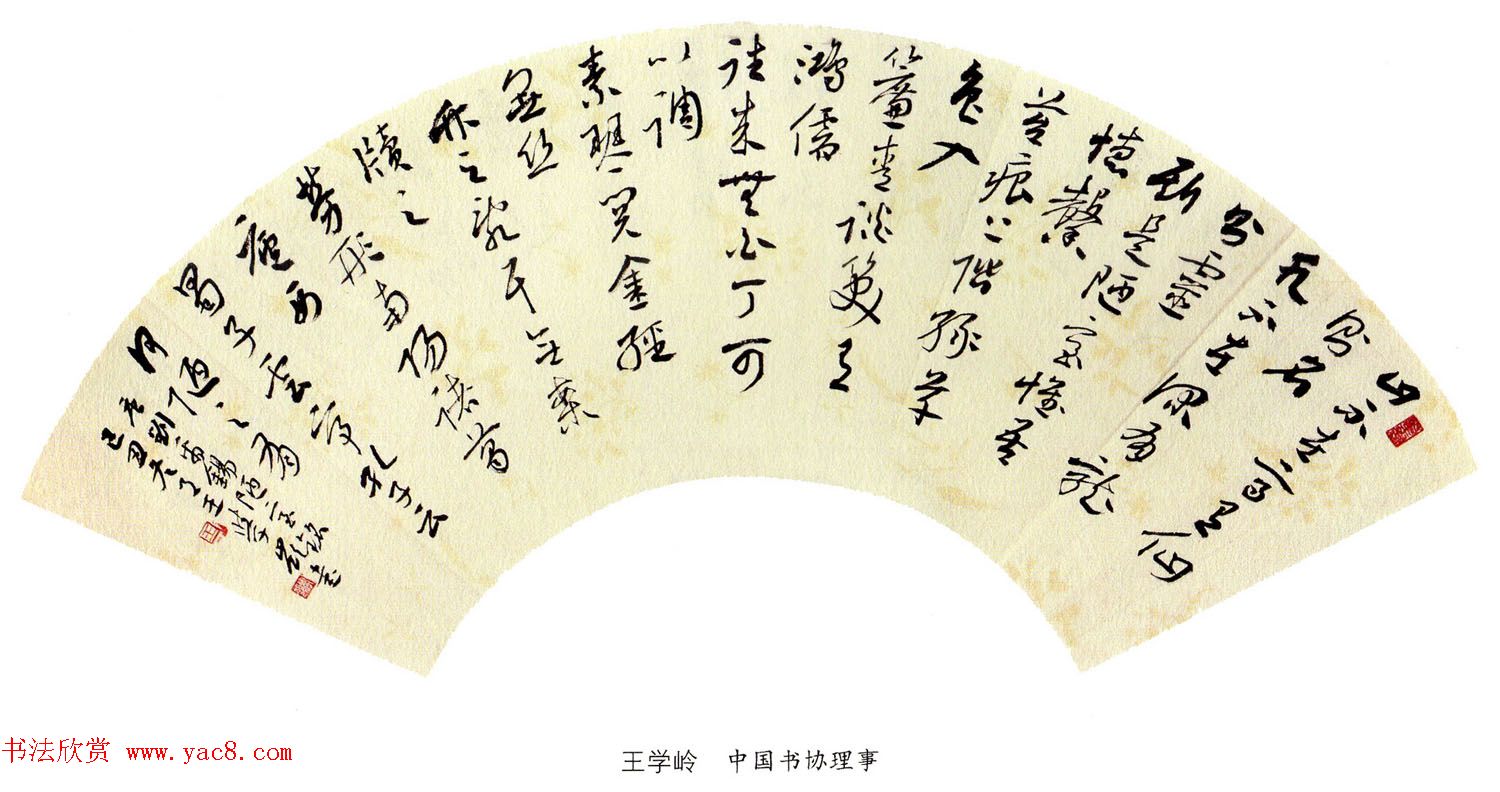 山不在高有仙
则名
水不在深有龙
则靈
斯是陋室惟吾
德馨
苔痕上阶绿草
色入
簾青谈笑有
鸿儒
往来無白丁可
以调
素琴阅金经
無丝
竹之乱耳无案
牍之
劳形南阳诸葛
庐西
蜀子云亭孔子云
何陋之有
唐刘禹锡陋室铭
己丑春月王学岭书
书法欣赏 www.yac8.com
王学岭 中国书协理事